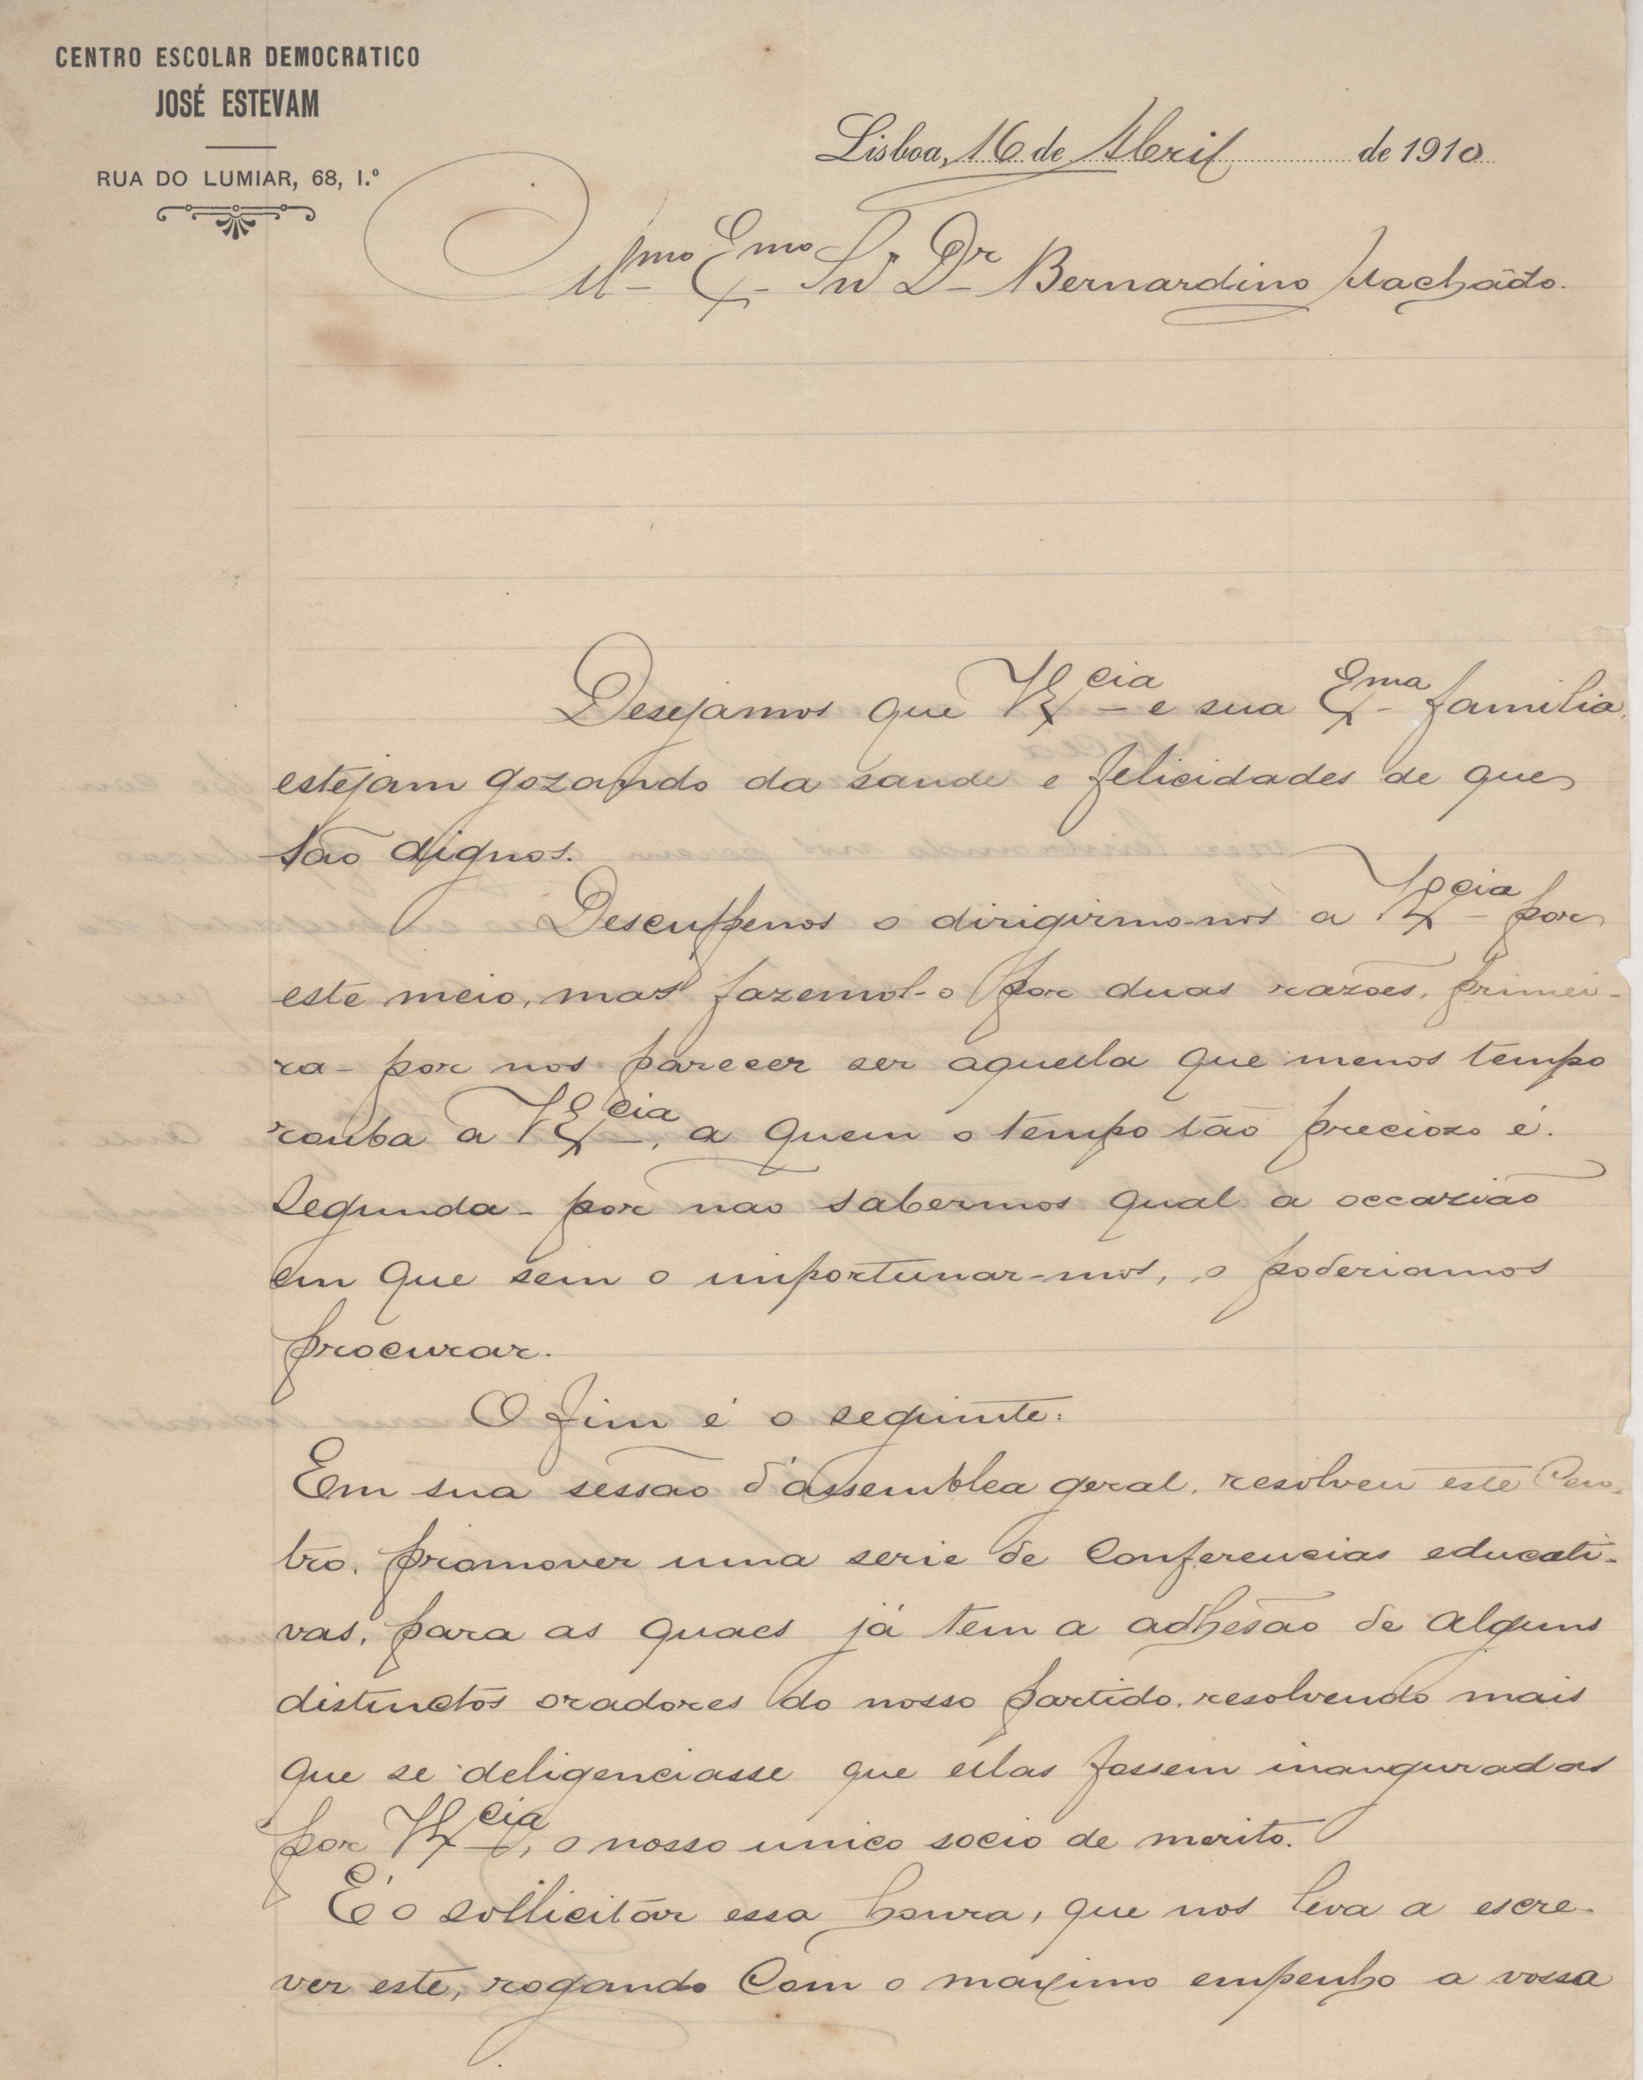 CENTRO ESCOLAR DEMOCRATICO
JOSÉ ESTEVAM
RUA DO LUMIAR, 68, 1.º
Lisboa, 16 de Abril de 1910
Illmo Exmo Snr Dr Bernardino Machado.
Desejamos que V Excia e sua Exma familia,
estejam gozando da saude e felicidades de que
são dignos.
Desculpenos o dirigirmo-nos a V Excia por
este meio, mas fazemol-o por duas razões, primei-
ra - por nos parecer ser aquella que menos tempo
rouba a V Excia, a quem o tempo tão preciozo é.
Segunda - por não sabermos qual a occazião
em que sem o importunar-mos, o poderiamos
procurar.
O fim é o seguinte:
Em sua sessão d'assemblea geral, resolveu este Cen-
tro, promover uma serie de Conferencias educati-
vas, para as quaes já tem a adhesão de alguns
distinctos oradores do nosso partido, resolvendo mais
que se deligenciasse que ellas fossem inauguradas
por V Excia, o nosso unico socio de merito.
É o sollicitar essa honra, que nos leva a escre-
ver este, rogando Com o maximo empenho a vossa